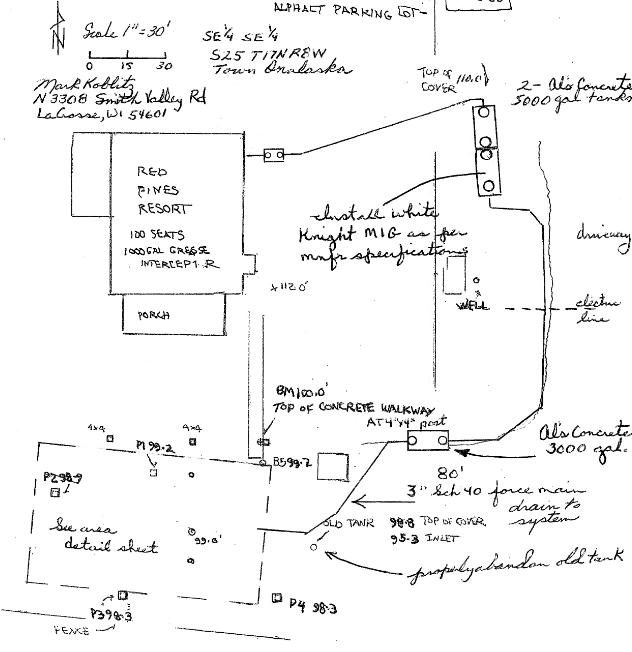 ALPHALT PARKING LOT
N
Scale 1"=30'
0 15 30
SE¼ SE¼
S25 T17N R8W
Town Onalaska
Mark Koblitz
N3308 Smith Valley Rd
LaCrosse, WI 54601
TOP OF 110.0'
COVER
2- Al's Concrete
5000 gal tanks
RED
PINES
RESORT
100 SEATS
1000 GAL GREESE
INTERCEPT R
PORCH
Install White
Knight MIG as per
mnfr specifications
x 112.0'
WELL
driveway
electric
line
BM 100.0'
TOP OF CONCRETE WALKWAY
AT 4"x4" post
Al's Concrete
3000 gal.
4x4
4x4
P1 99.2
P2 98.9
B5 99.7
80'
3" Sch 40 force main
drain to
system
See area
detail sheet
99.0'
OLD TANK 98.8 TOP OF COVER
95.3 INLET
properly abandon old tank
P3 98.3
P4 98.3
FENCE